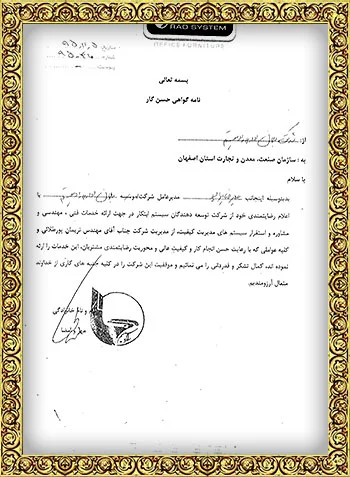 RAD SYSTEM
OFFICE FURNITURE
۹۵،۱۱،۵
بسمه تعالی
نامه گواهی حسن کار
از:
به : سازمان صنعت، معدن و تجارت استان اصفهان
با سلام
بدینوسیله اینجانب مدیرعامل شرکت با
اعلام رضایتمندی خود از شرکت توسعه دهندگان سیستم ابتکار در جهت ارائه خدمات فنی ، مهندسی و
مشاوره و استقرار سیستم های مدیریت کیفیت، از مدیریت شرکت جناب آقای مهندس نریمان پورطلائی و
کلیه عواملی که با رعایت حسن انجام کار و کیفیت عالی و محوریت رضایتمندی مشتریان، این خدمات را ارائه
نموده اند، کمال تشکر و قدردانی را می نمائیم و موفقیت این شرکت را در کلیه جنبه های کاری از خداوند
متعال آرزومندیم.
و نام خانوادگی